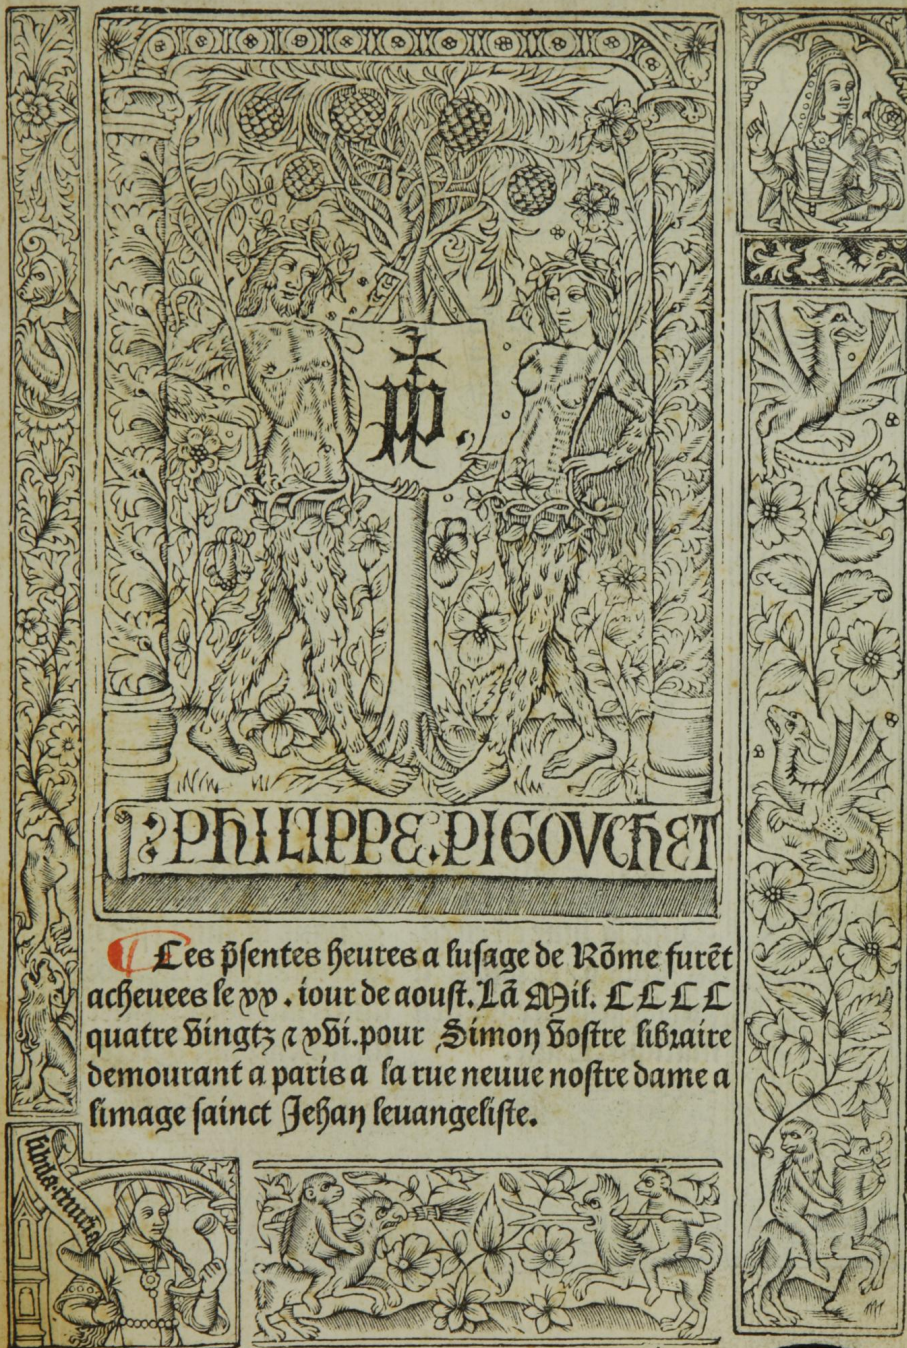 PHILIPPE PIGOVCHET
¶ Ces p̄sentes heures a lusage de Rōme furēt
acheuees le xx . iour de aoust. Lā Mil. CCCC
quatre vingtz ⁊ xvi. pour Simon vostre libraire
demourant a paris a la rue neuue nostre dame a
limage sainct Jehan leuangeliste.